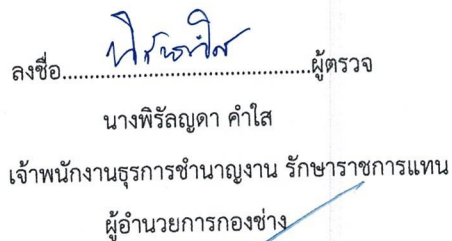 ลงชื่อ..........................................ผู้ตรวจ
นางพิรัลญดา คำใส
เจ้าพนักงานธุรการชำนาญงาน รักษาราชการแทน
ผู้อำนวยการกองช่าง